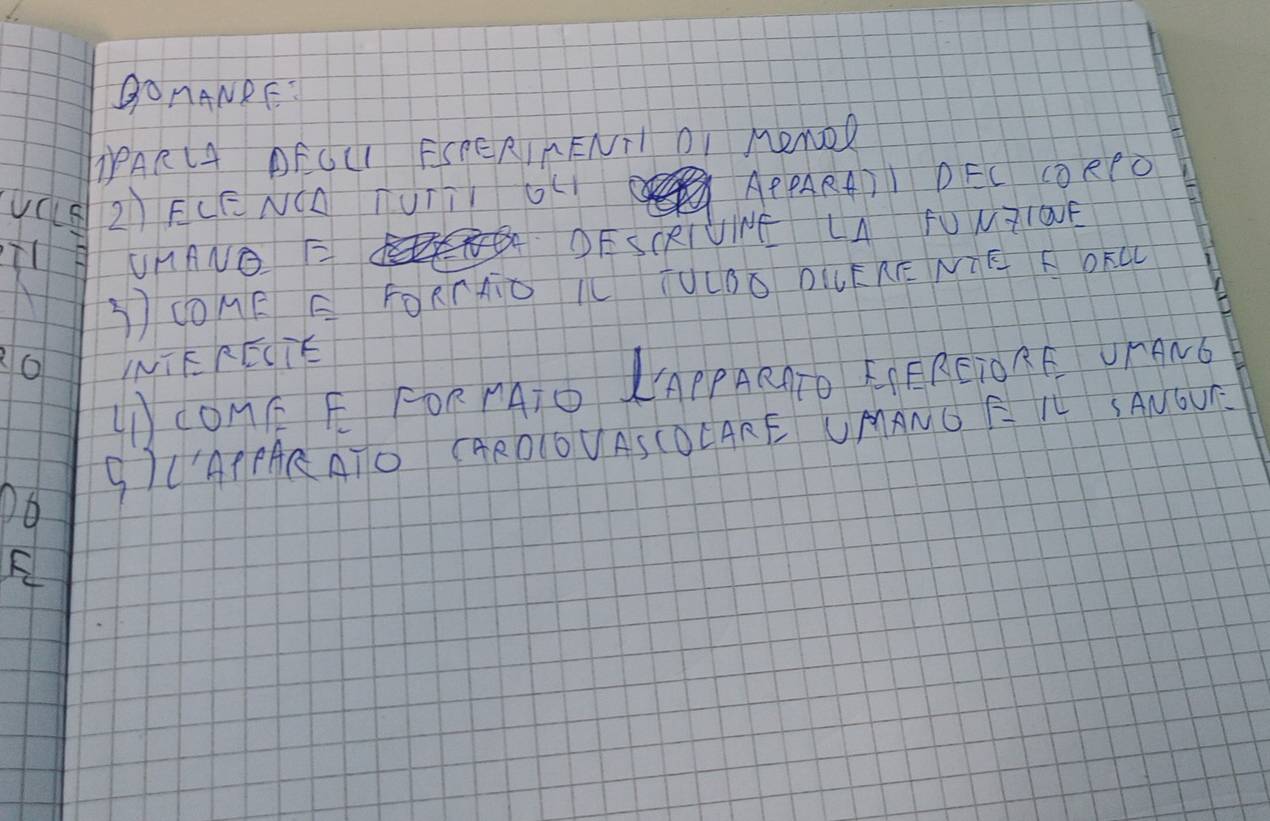 DOMANDE:
1) PARLA DEGLI ESPERIMENTI DI Mendel
2) ELENCA TUTTI GLI APPARATI DEL CORPO
UMANO E DESCRIVINE LA FUNZIONE
3) COME E FORMATO IL TULBO DIGERENTE E DELL
INTERECTE
4) COME E FORMATO L'APPARATO ESERETORE UMANO
5) L'APPARATO CARDIOVASCOLARE UMANO E IL SANGUE
UCLE
TI
RO
DO
E